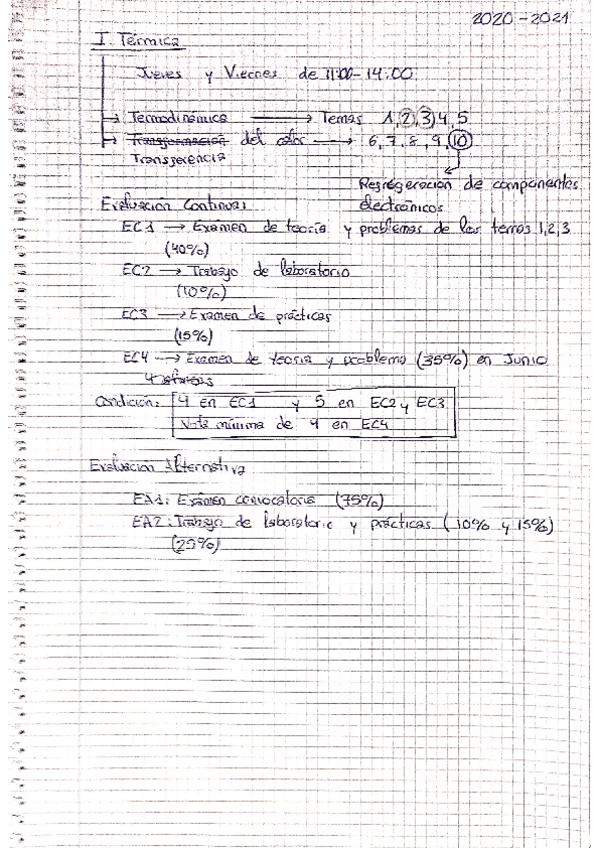 2020-2021
I. Térmica
Jueves y Viernes de 11:00-14:00
Termodinámica → Temas 1,2,3,4,5
Transformación del calor → 6,7,8,9,10
Transferencia
Refrigeración de componentes
electrónicos
Evaluación Continua:
EC1 → Examen de teoría y problemas de los temas 1,2,3
(40%)
EC2 → Trabajo de laboratorio
(10%)
EC3 → Examen de prácticas
(15%)
EC4 → Examen de teoría y problema (35%) en Junio
Condición: 4 en EC1 y 5 en EC2 y EC3
Nota mínima de 4 en EC4
Evaluación Alternativa
EA1: Exámen convocatoria (75%)
EA2: Trabajo de laboratorio y prácticas (10% y 15%)
(25%)